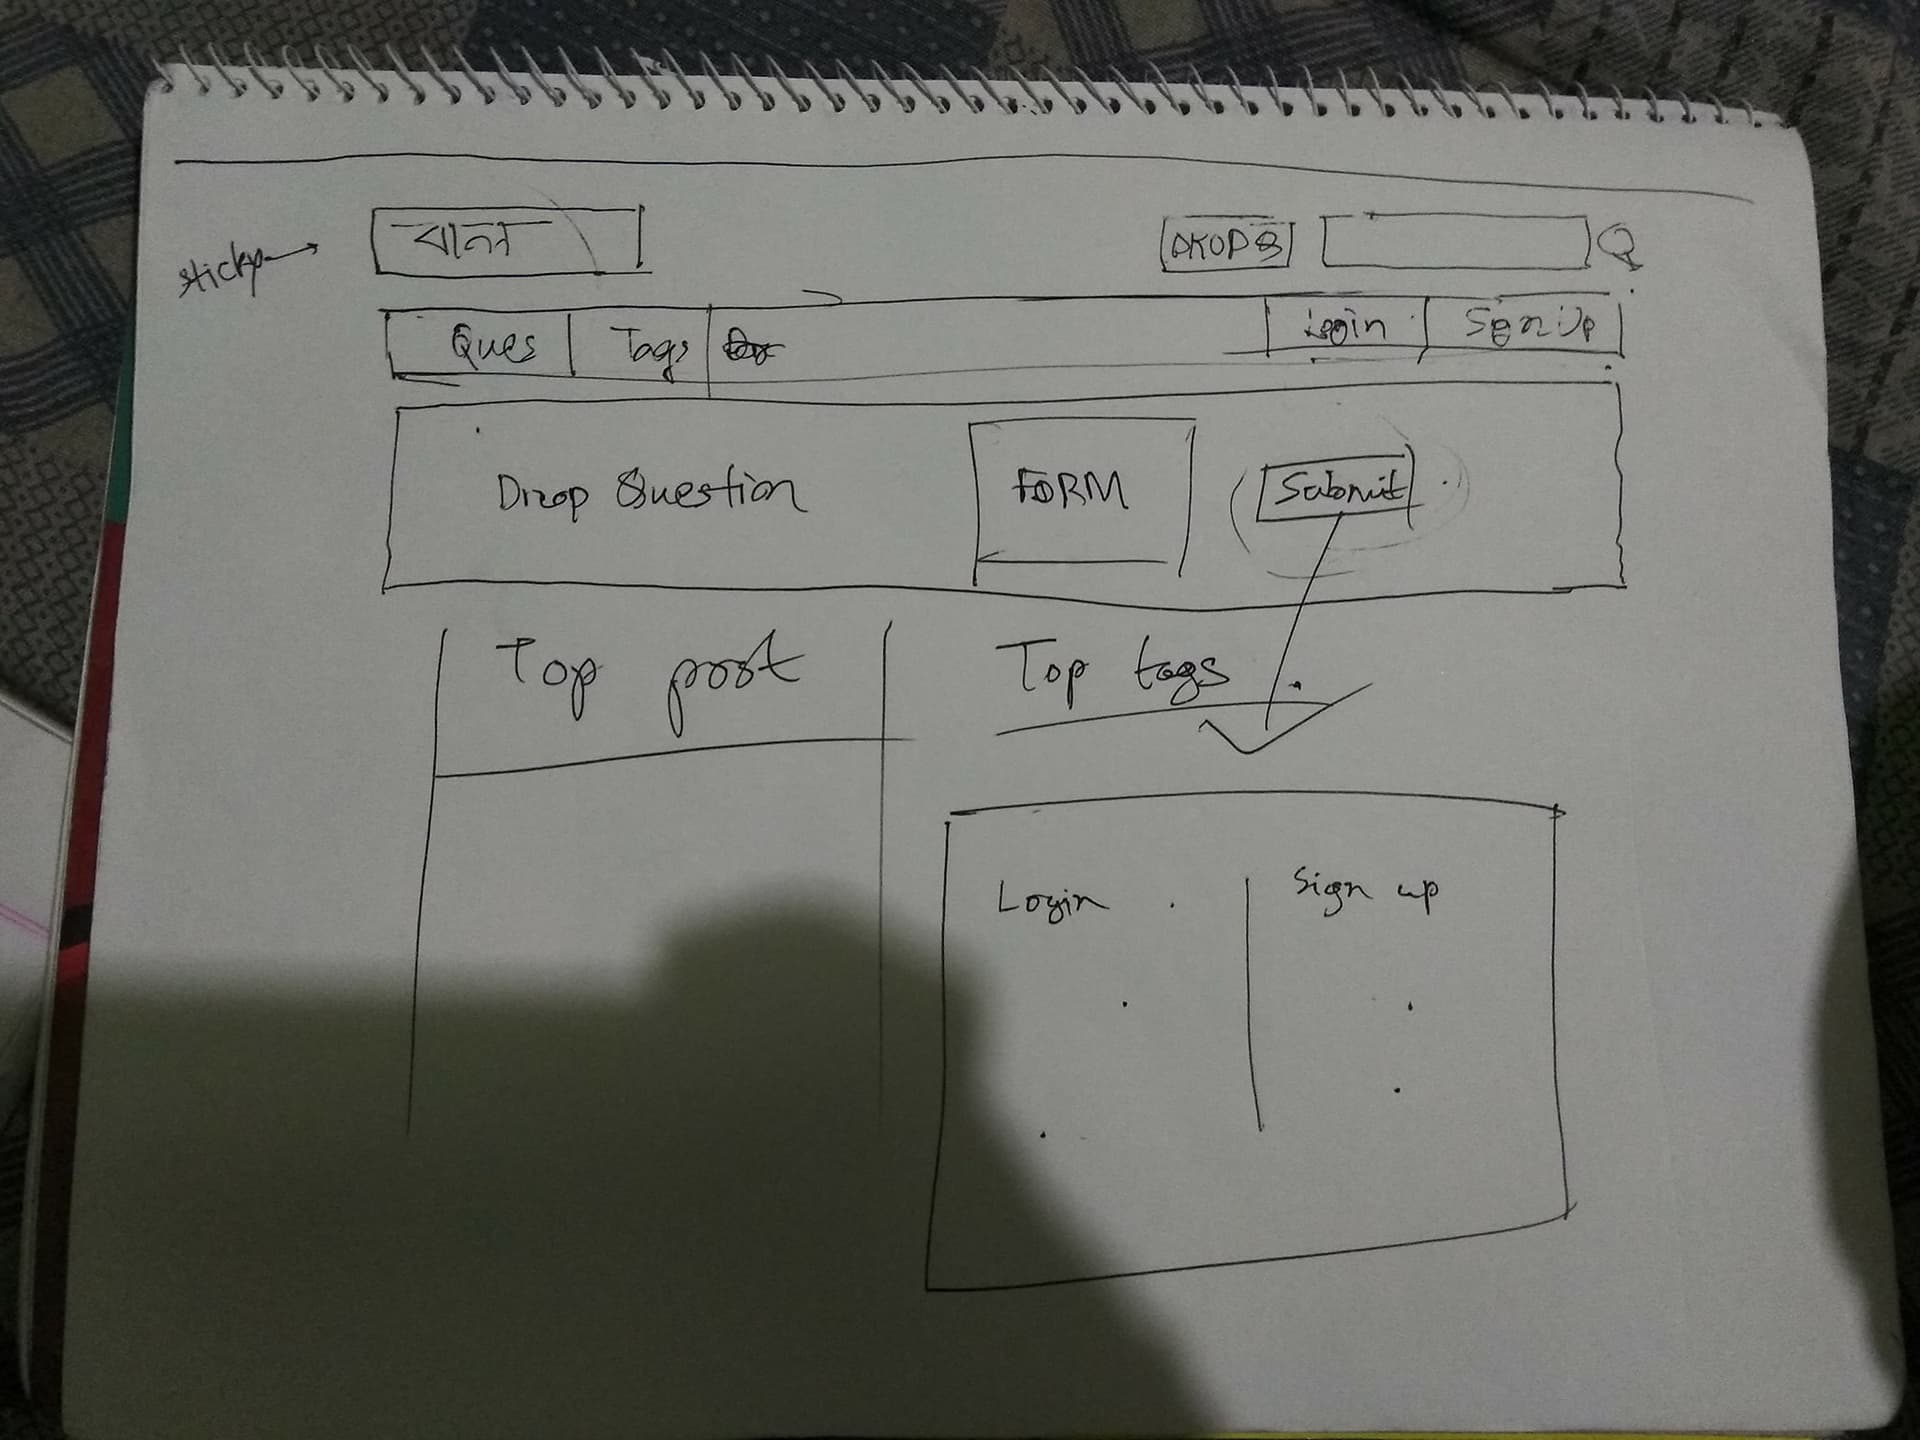 sticky
DROP Q
Ques Tags Login Sign Up
Drop Question FORM Submit
Top post Top tags
Login Sign up